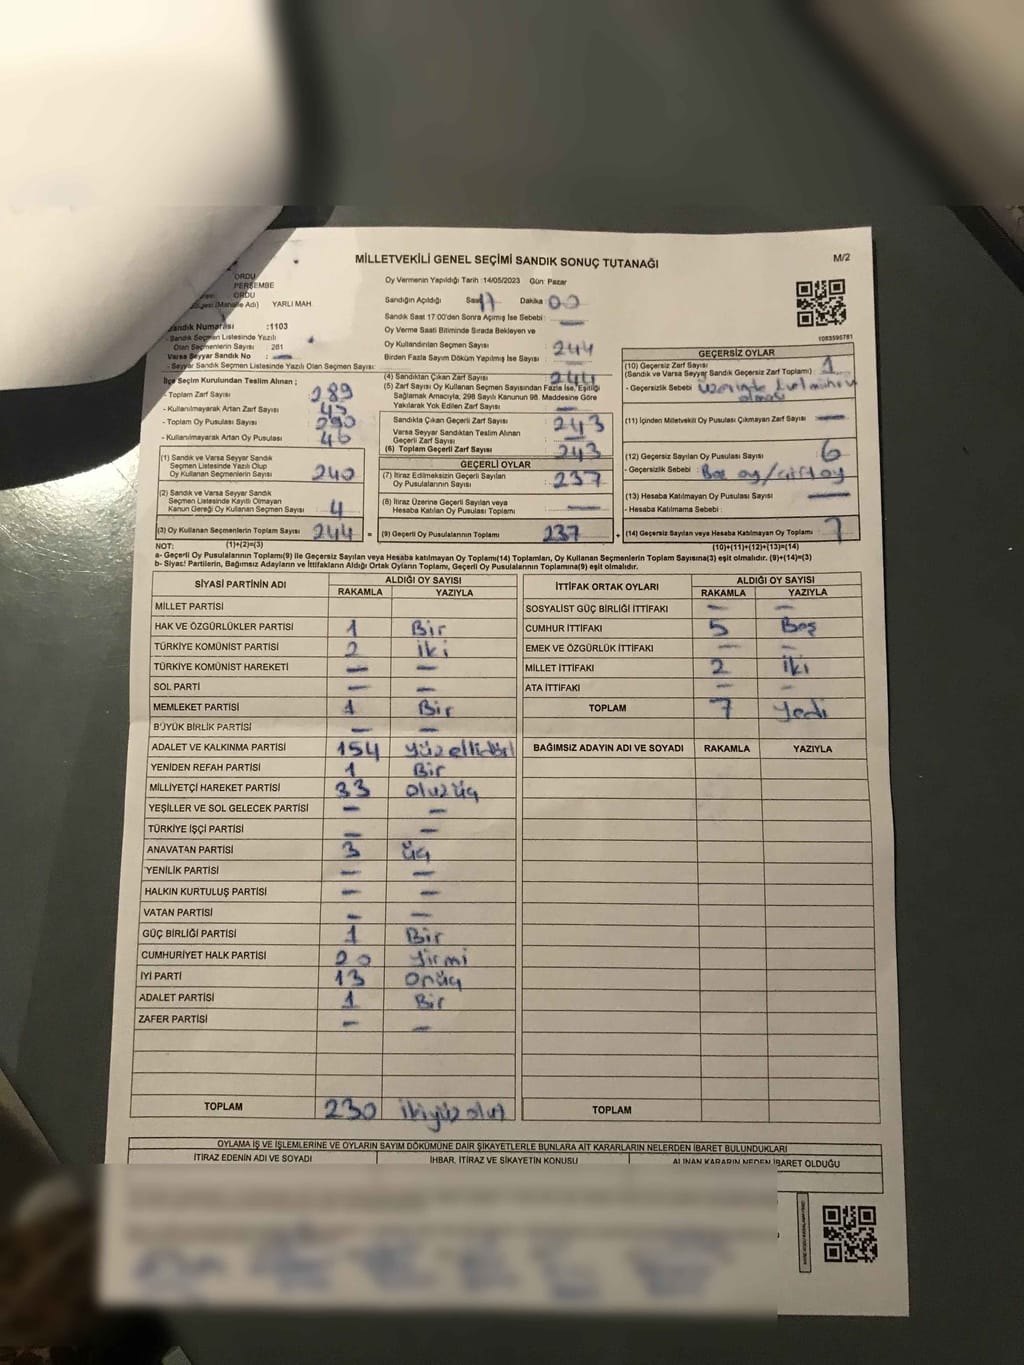 MİLLETVEKİLİ GENEL SEÇİMİ SANDIK SONUÇ TUTANAĞI
M/2
ORDU
PERŞEMBE
ORDU
(Mahalle Adı) YARLI MAH.
Sandık Numarası :1103
- Sandık Seçmen Listesinde Yazılı
Olan Seçmenlerin Sayısı 281
Varsa Seyyar Sandık No : —
- Seyyar Sandık Seçmen Listesinde Yazılı Olan Seçmen Sayısı:
İlçe Seçim Kurulundan Teslim Alınan ;
- Toplam Zarf Sayısı : 289
- Kullanılmayarak Artan Zarf Sayısı : 45
- Toplam Oy Pusulası Sayısı : 290
- Kullanılmayarak Artan Oy Pusulası : 46
(1) Sandık ve Varsa Seyyar Sandık
Seçmen Listesinde Yazılı Olup
Oy Kullanan Seçmenlerin Sayısı : 240
(2) Sandık ve Varsa Seyyar Sandık
Seçmen Listesinde Kayıtlı Olmayan
Kanun Gereği Oy Kullanan Seçmenlerin Sayısı : 4
(3) Oy Kullanan Seçmenlerin Toplam Sayısı : 244
Oy Vermenin Yapıldığı Tarih :14/05/2023 Gün: Pazar
Sandığın Açıldığı Saat 17 Dakika : 00
Sandık Saat 17.00'den Sonra Açımış İse Sebebi : —
Oy Verme Saati Bitiminde Sırada Bekleyen ve
Oy Kullandırılan Seçmen Sayısı : 244
Birden Fazla Sayım Döküm Yapılmış İse Sayısı : —
(4) Sandıktan Çıkan Zarf Sayısı : 244
(5) Zarf Sayısı Oy Kullanan Seçmen Sayısından Fazla İse, Eşitliği
Sağlamak Amacıyla, 298 Sayılı Kanunun 98. Maddesine Göre
Yakılarak Yok Edilen Zarf Sayısı : —
Sandıkta Çıkan Geçerli Zarf Sayısı : 243
Varsa Seyyar Sandıktan Teslim Alınan
Geçerli Zarf Sayısı : —
(6) Toplam Geçerli Zarf Sayısı : 243
GEÇERLİ OYLAR
(7) İtiraz Edilmeksizin Geçerli Sayılan
Oy Pusulalarının Sayısı : 237
(8) İtiraz Üzerine Geçerli Sayılan veya
Hesaba Katılan Oy Pusulası Toplamı : —
= (9) Geçerli Oy Pusulalarının Toplamı 237 +
1083595781
GEÇERSİZ OYLAR
(10) Geçersiz Zarf Sayısı
(Sandık ve Varsa Seyyar Sandık Geçersiz Zarf Toplamı) : 1
- Geçersizlik Sebebi : Üzerinde
olması
(11) İçinden Milletvekili Oy Pusulası Çıkmayan Zarf Sayısı : —
(12) Geçersiz Sayılan Oy Pusulası Sayısı : 6
- Geçersizlik Sebebi : Boş oy/çift oy
(13) Hesaba Katılmayan Oy Pusulası Sayısı : —
- Hesaba Katılmama Sebebi :
(14) Geçersiz Sayılan veya Hesaba Katılmayan Oy Toplamı : 7
NOT: (1)+(2)=(3) (10)+(11)+(12)+(13)=(14)
a- Geçerli Oy Pusulalarının Toplamı(9) ile Geçersiz Sayılan veya Hesaba katılmayan Oy Toplamı(14) Toplamları, Oy Kullanan Seçmenlerin Toplam Sayısına(3) eşit olmalıdır. (9)+(14)=(3)
b- Siyasi Partilerin, Bağımsız Adayların ve İttifakların Aldığı Ortak Oyların Toplamı, Geçerli Oy Pusulalarının Toplamına(9) eşit olmalıdır.
SİYASİ PARTİNİN ADI ALDIĞI OY SAYISI
RAKAMLA YAZIYLA
MİLLET PARTİSİ
HAK VE ÖZGÜRLÜKLER PARTİSİ 1 Bir
TÜRKİYE KOMÜNİST PARTİSİ 2 iki
TÜRKİYE KOMÜNİST HAREKETİ — —
SOL PARTİ — —
MEMLEKET PARTİSİ 1 Bir
BÜYÜK BİRLİK PARTİSİ — —
ADALET VE KALKINMA PARTİSİ 154 Yüzellidört
YENİDEN REFAH PARTİSİ 1 Bir
MİLLİYETÇİ HAREKET PARTİSİ 33 otuzüç
YEŞİLLER VE SOL GELECEK PARTİSİ — —
TÜRKİYE İŞÇİ PARTİSİ — —
ANAVATAN PARTİSİ 3 üç
YENİLİK PARTİSİ — —
HALKIN KURTULUŞ PARTİSİ — —
VATAN PARTİSİ — —
GÜÇ BİRLİĞİ PARTİSİ 1 Bir
CUMHURİYET HALK PARTİSİ 20 Yirmi
İYİ PARTİ 13 onüç
ADALET PARTİSİ 1 Bir
ZAFER PARTİSİ — —
TOPLAM 230 ikiyüz otuz
İTTİFAK ORTAK OYLARI ALDIĞI OY SAYISI
RAKAMLA YAZIYLA
SOSYALİST GÜÇ BİRLİĞİ İTTİFAKI — —
CUMHUR İTTİFAKI 5 Beş
EMEK VE ÖZGÜRLÜK İTTİFAKI — —
MİLLET İTTİFAKI 2 iki
ATA İTTİFAKI — —
TOPLAM 7 Yedi
BAĞIMSIZ ADAYIN ADI VE SOYADI RAKAMLA YAZIYLA
TOPLAM
OYLAMA İŞ VE İŞLEMLERİNE VE OYLARIN SAYIM DÖKÜMÜNE DAİR ŞİKAYETLERLE BUNLARA AİT KARARLARIN NELERDEN İBARET BULUNDUKLARI
İTİRAZ EDENİN ADI VE SOYADI İHBAR, İTİRAZ VE ŞİKAYETİN KONUSU ALINAN KARARIN NEDEN İBARET OLDUĞU